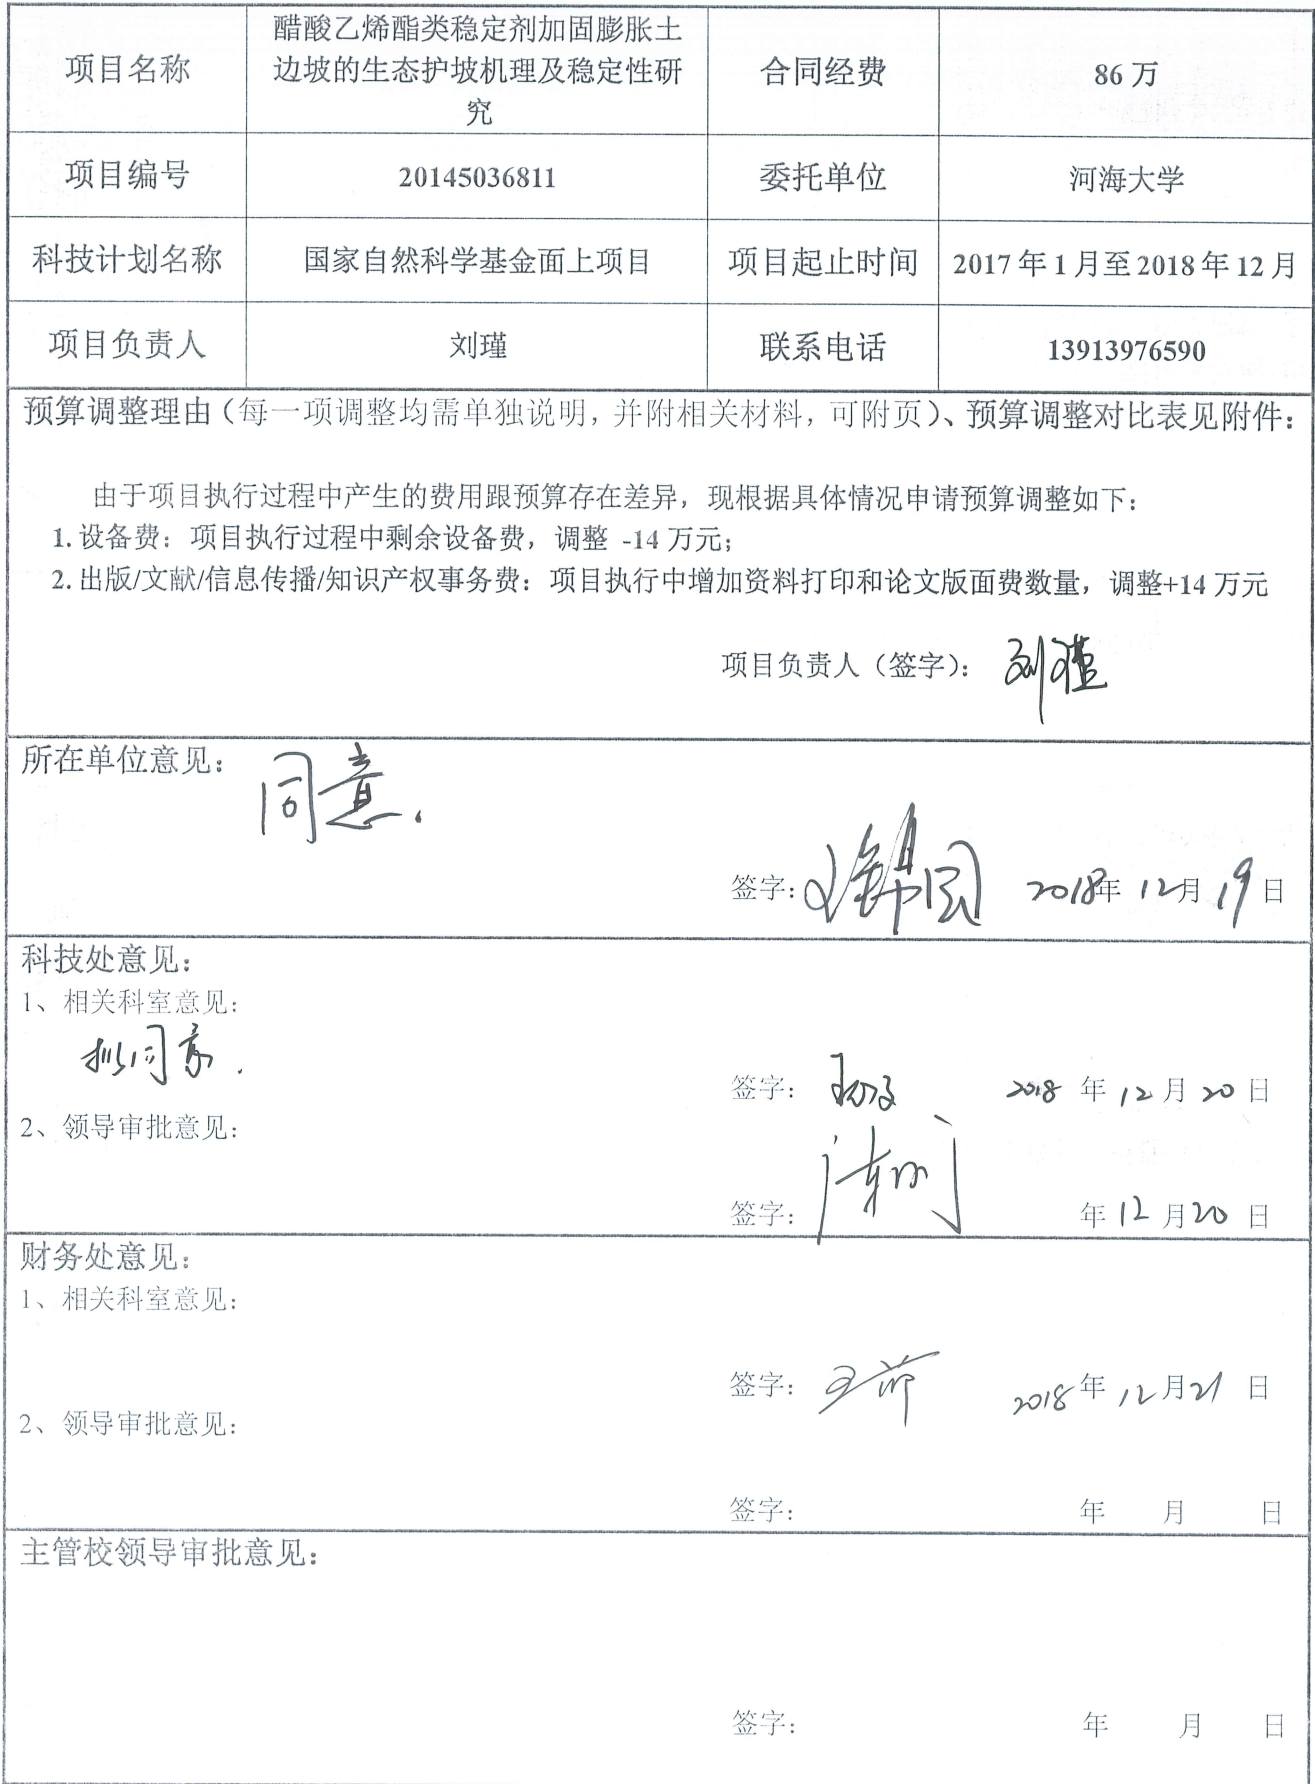 项目名称
醋酸乙烯酯类稳定剂加固膨胀土
边坡的生态护坡机理及稳定性研
究
合同经费
86 万
项目编号
20145036811
委托单位
河海大学
科技计划名称
国家自然科学基金面上项目
项目起止时间
2017 年 1 月至 2018 年 12 月
项目负责人
刘瑾
联系电话
13913976590
预算调整理由（每一项调整均需单独说明，并附相关材料，可附页）、预算调整对比表见附件：
由于项目执行过程中产生的费用跟预算存在差异，现根据具体情况申请预算调整如下：
1. 设备费：项目执行过程中剩余设备费，调整 -14 万元；
2. 出版/文献/信息传播/知识产权事务费：项目执行中增加资料打印和论文版面费数量，调整+14 万元
项目负责人（签字）： 刘瑾
所在单位意见： 同意.
签字： 2018年 12月 19日
科技处意见：
1、相关科室意见：
拟同意.
签字： 2018 年 12 月 20 日
2、领导审批意见：
签字： 年 12 月 20 日
财务处意见：
1、相关科室意见：
签字： 2018 年 12 月 21 日
2、领导审批意见：
签字： 年 月 日
主管校领导审批意见：
签字： 年 月 日